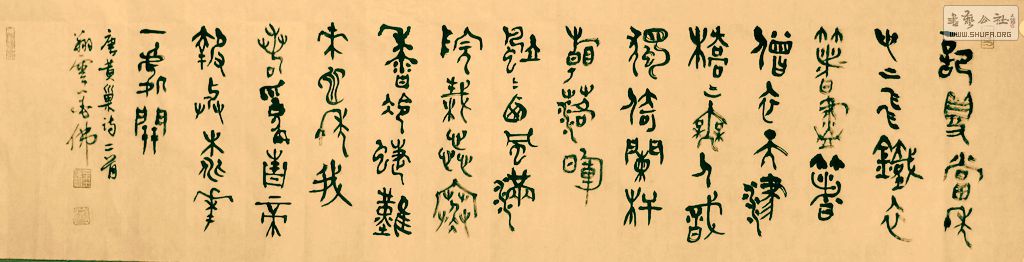 書藝公社
WWW.SHUFA.ORG
記得當年
艸上飛鐵衣
著盡著
僧衣天津
橋上無人識
獨倚闌杆
看落暉
颯颯西風滿
院栽蕊寒
香冷蝶難
來他年我
若為青帝
報與桃花
一處開
唐黃巢詩二首
雲 佛